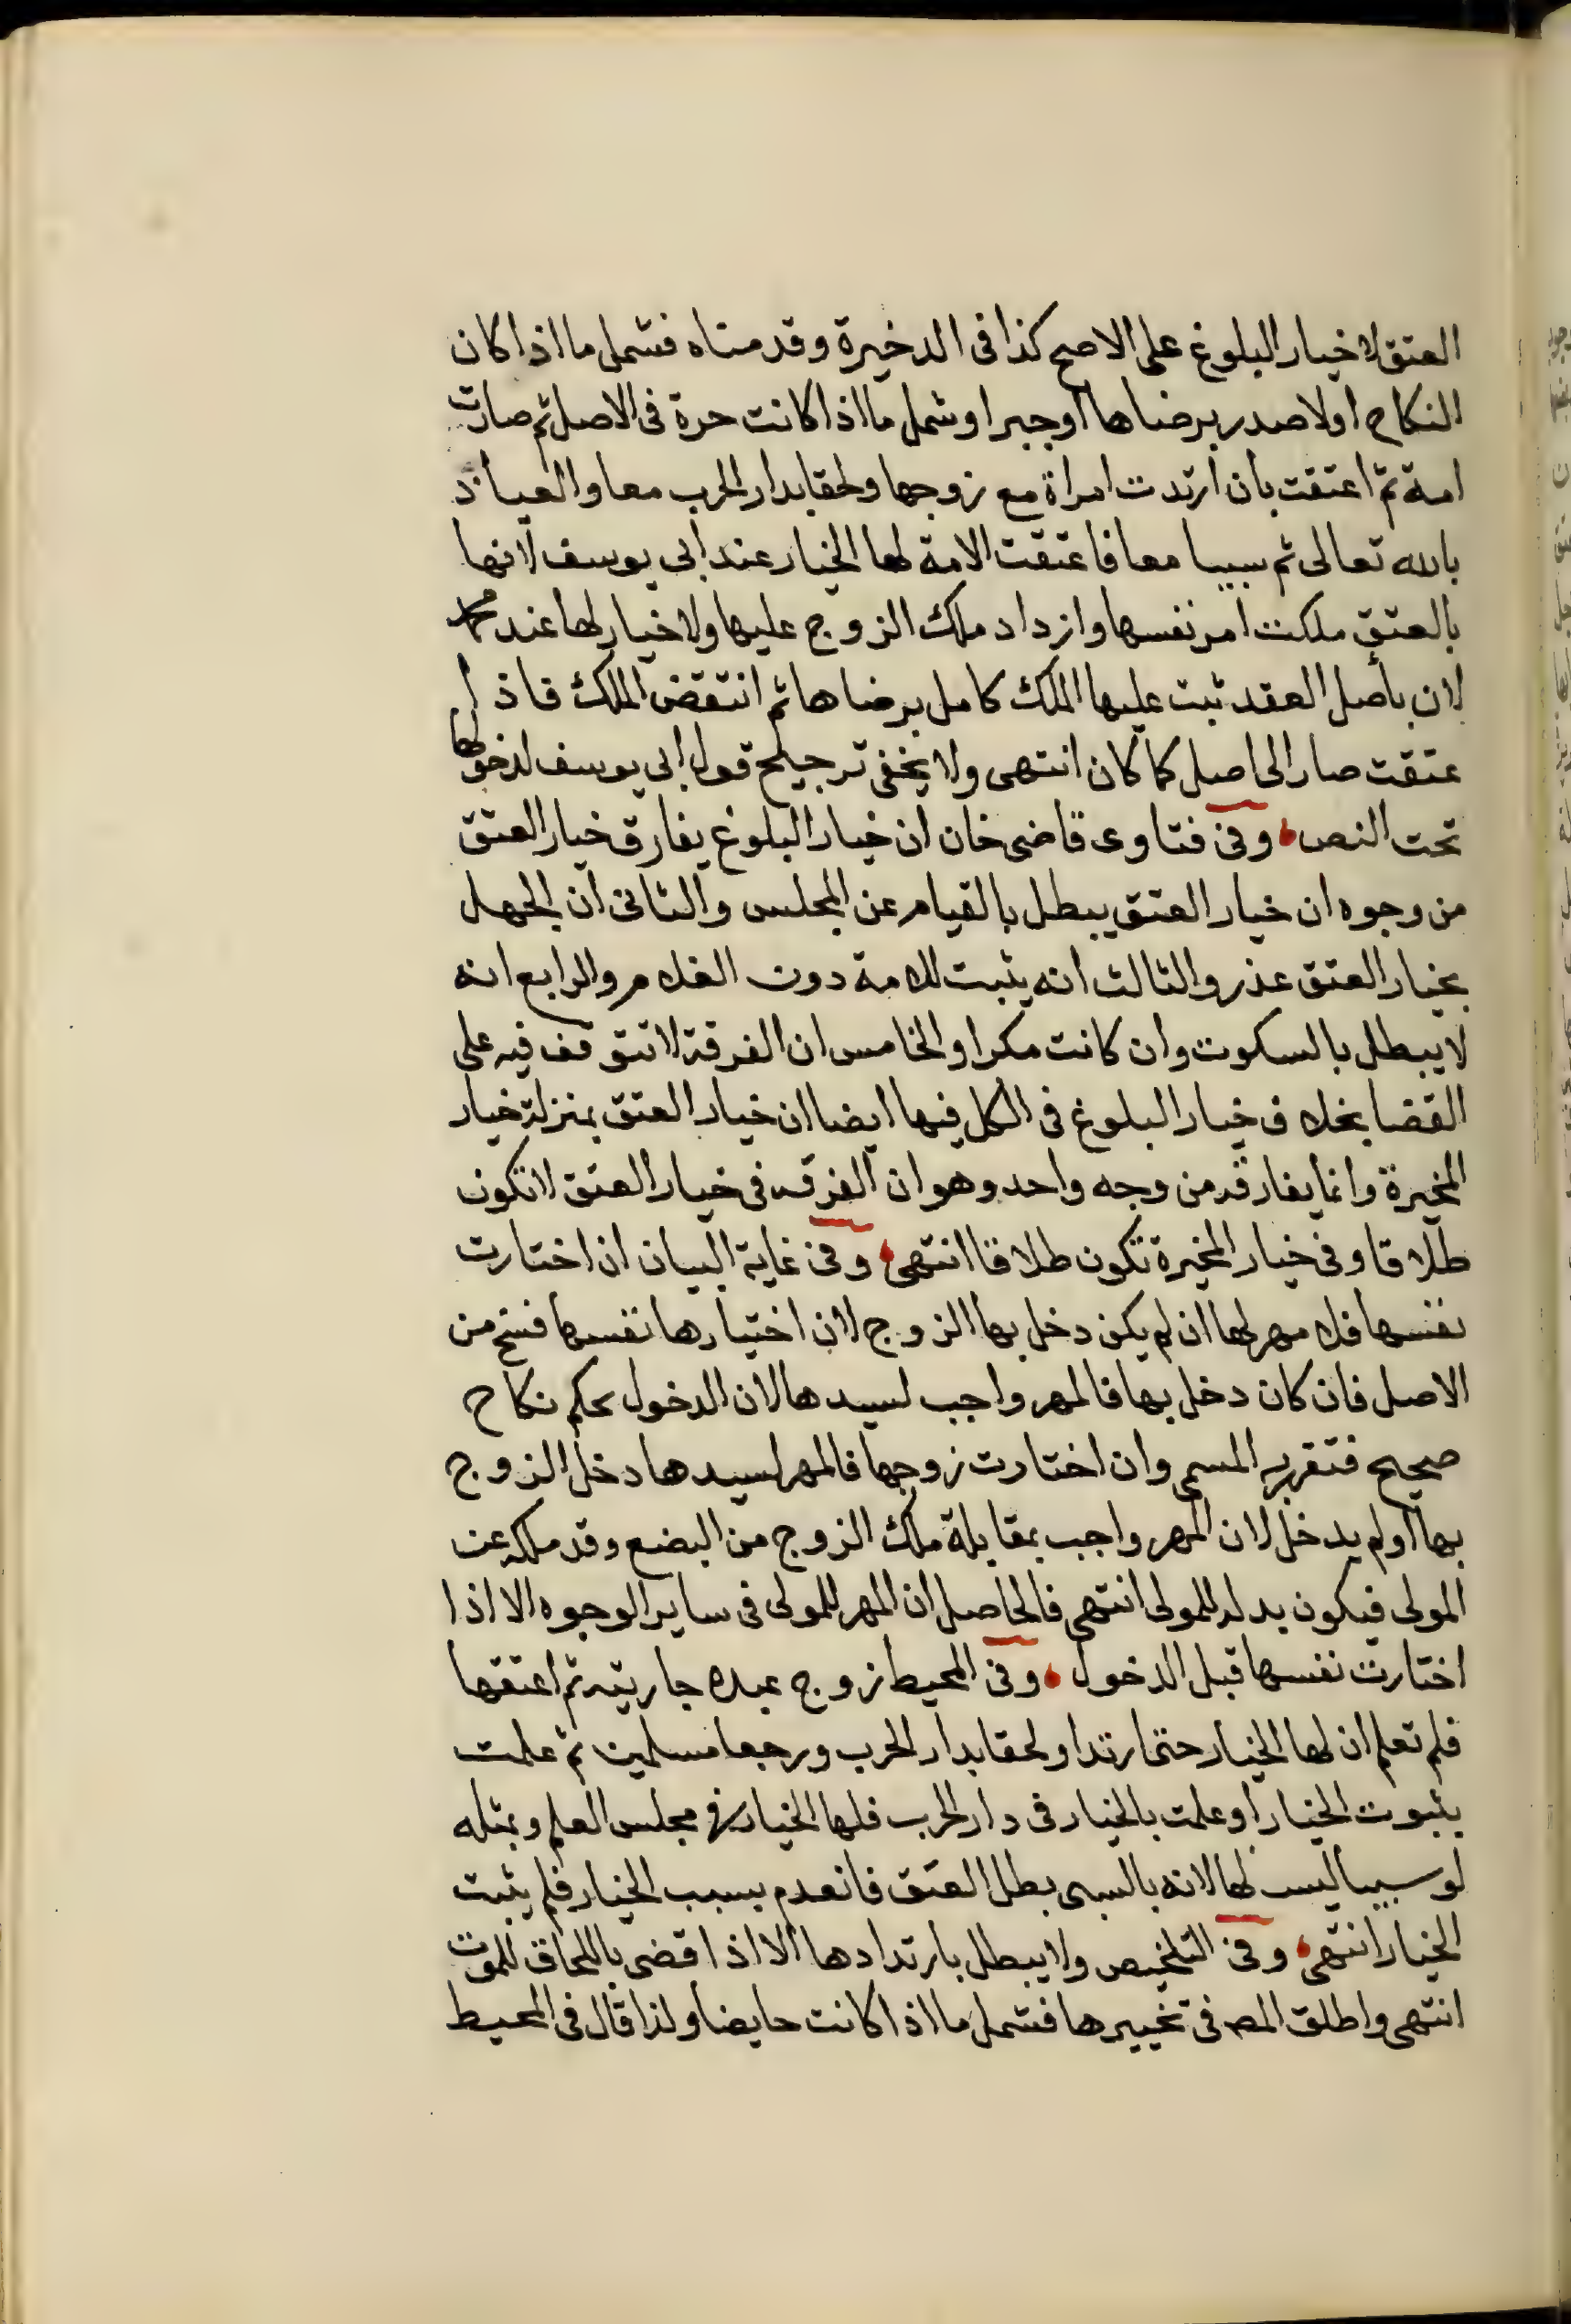 العتق لا خيار البلوغ على الاصح كذا فى الدخيرة وقدمناه فشمل ما اذا كان
النكاح اولا صدر برضاها اوجبرا وشمل ما اذا كانت حرة فى الاصل ثم صارت
امة ثم اعتقت بان ارتدت امراة مع زوجها ولحقا بدار الحرب معا والعياذ
بالله تعالى ثم سبيا معا فاعتقت الامة لها الخيار عند ابى يوسف لانها
بالعتق ملكت امر نفسها وازداد ملك الزوج عليها ولا خيار لها عند محمد
لان باصل العقد ثبت عليها الملك كامل برضاها ثم انتقض الملك فاذا
عتقت صار الى اصل كما كان انتهى ولا يخفى ترجيح قول ابى يوسف لدخولها
تحت النص وفى فتاوى قاضى خان ان خيار البلوغ يفارق خيار العتق
من وجوه ان خيار العتق يبطل بالقيام عن المجلس والثانى ان الجهل
بخيار العتق عذر والثالث انه يثبت للامة دون الغلام والرابع انه
لا يبطل بالسكوت وان كانت مكرا والخامس ان الفرقة لا تتوقف فيه على
القضا بخلاف خيار البلوغ فى الكل فيها ايضا ان خيار العتق بمنزلة خيار
المخيرة وانما يفارقه من وجه واحد وهو ان الفرقه فى خيار العتق لا تكون
طلاقا وفى خيار المخيرة تكون طلاقا انتهى وفى غاية البيان ان اختارت
نفسها فلا مهر لها ان لم يكن دخل بها الزوج لان اختيارها نفسها فسخ من
الاصل فان كان دخل بها فالمهر واجب لسيدها لان الدخول بحكم نكاح
صحيح فتقرر به المسمى وان اختارت زوجها فالمهر لسيدها دخل الزوج
بها اولم يدخل لان المهر واجب بمقابلة ملك الزوج من البضع وقد ملكه عن
المولى فيكون بدله للمولى انتهى فالحاصل ان المهر للمولى فى ساير الوجوه الا اذا
اختارت نفسها قبل الدخول وفى المحيط زوج عبده جاريته ثم اعتقها
فلم تعلم ان لها الخيار حتى ارتدا ولحقا بدار الحرب ورجعا مسلمين ثم علمت
بثبوت الخيار او علمت بالخيار فى دار الحرب فلها الخيار فى مجلس العلم وبمثله
لو سبيا ليس لها لانه بالسبى بطل العتق فانعدم بسبب الخيار فلم يثبت
الخيار انتهى وفى التلخيص ولا يبطل بارتدادها الا اذا قضى باللحاق للموت
انتهى واطلق المصـ فى تخييرها فشمل ما اذا كانت حايضا ولذا قال فى المحيط